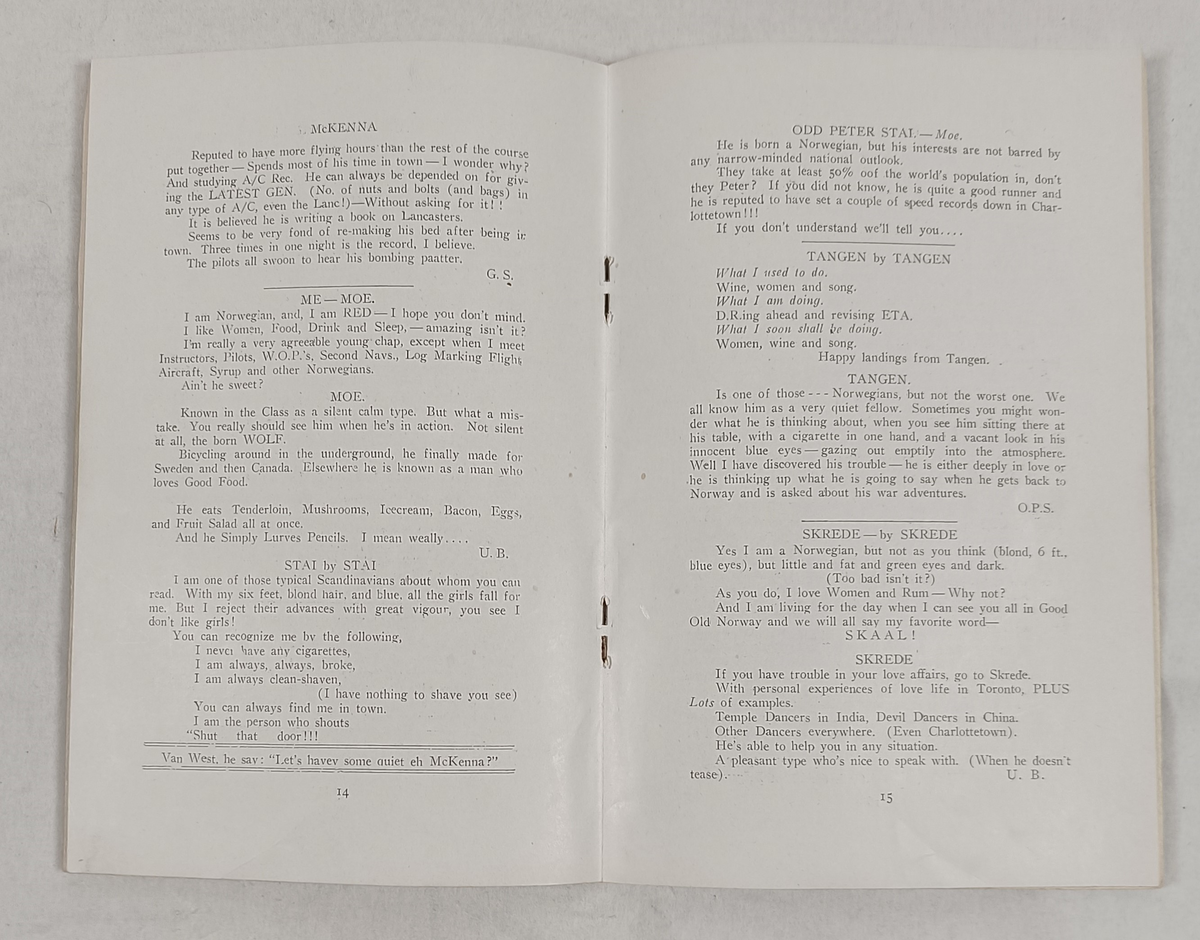 McKENNA
Reputed to have more flying hours than the rest of the course
put together — Spends most of his time in town — I wonder why?
And studying A/C Rec. He can always be depended on for giv-
ing the LATEST GEN. (No. of nuts and bolts (and bags) in
any type of A/C, even the Lanc!)—Without asking for it! !
It is believed he is writing a book on Lancasters.
Seems to be very fond of re-making his bed after being in
town. Three times in one night is the record, I believe.
The pilots all swoon to hear his bombing paatter.
G. S.
ME — MOE.
I am Norwegian, and, I am RED — I hope you don't mind.
I like Women, Food, Drink and Sleep, — amazing isn't it?
I'm really a very agreeable young chap, except when I meet
Instructors, Pilots, W.O.P.'s, Second Navs., Log Marking Flight,
Aircraft, Syrup and other Norwegians.
Ain't he sweet?
MOE.
Known in the Class as a silent calm type. But what a mis-
take. You really should see him when he's in action. Not silent
at all, the born WOLF.
Bicycling around in the underground, he finally made for
Sweden and then Canada. Elsewhere he is known as a man who
loves Good Food.
He eats Tenderloin, Mushrooms, Icecream, Bacon, Eggs,
and Fruit Salad all at once.
And he Simply Lurves Pencils. I mean weally....
U. B.
STAI by STAI
I am one of those typical Scandinavians about whom you can
read. With my six feet, blond hair, and blue, all the girls fall for
me. But I reject their advances with great vigour, you see I
don't like girls!
You can recognize me by the following,
I never have any cigarettes,
I am always, always, broke,
I am always clean-shaven,
(I have nothing to shave you see)
You can always find me in town.
I am the person who shouts
"Shut that door!!!
Van West, he say: "Let's havev some quiet eh McKenna?"
14
ODD PETER STAI.—Moe.
He is born a Norwegian, but his interests are not barred by
any narrow-minded national outlook.
They take at least 50% oof the world's population in, don't
they Peter? If you did not know, he is quite a good runner and
he is reputed to have set a couple of speed records down in Char-
lottetown!!!
If you don't understand we'll tell you....
TANGEN by TANGEN
What I used to do.
Wine, women and song.
What I am doing.
D.R.ing ahead and revising ETA.
What I soon shall be doing.
Women, wine and song.
Happy landings from Tangen.
TANGEN.
Is one of those - - - Norwegians, but not the worst one. We
all know him as a very quiet fellow. Sometimes you might won-
der what he is thinking about, when you see him sitting there at
his table, with a cigarette in one hand, and a vacant look in his
innocent blue eyes — gazing out emptily into the atmosphere.
Well I have discovered his trouble — he is either deeply in love or
he is thinking up what he is going to say when he gets back to
Norway and is asked about his war adventures.
O.P.S.
SKREDE — by SKREDE
Yes I am a Norwegian, but not as you think (blond, 6 ft.,
blue eyes), but little and fat and green eyes and dark.
(Too bad isn't it?)
As you do, I love Women and Rum — Why not?
And I am living for the day when I can see you all in Good
Old Norway and we will all say my favorite word—
SKAAL!
SKREDE
If you have trouble in your love affairs, go to Skrede.
With personal experiences of love life in Toronto, PLUS
Lots of examples.
Temple Dancers in India, Devil Dancers in China.
Other Dancers everywhere. (Even Charlottetown).
He's able to help you in any situation.
A pleasant type who's nice to speak with. (When he doesn't
tease). U. B.
15